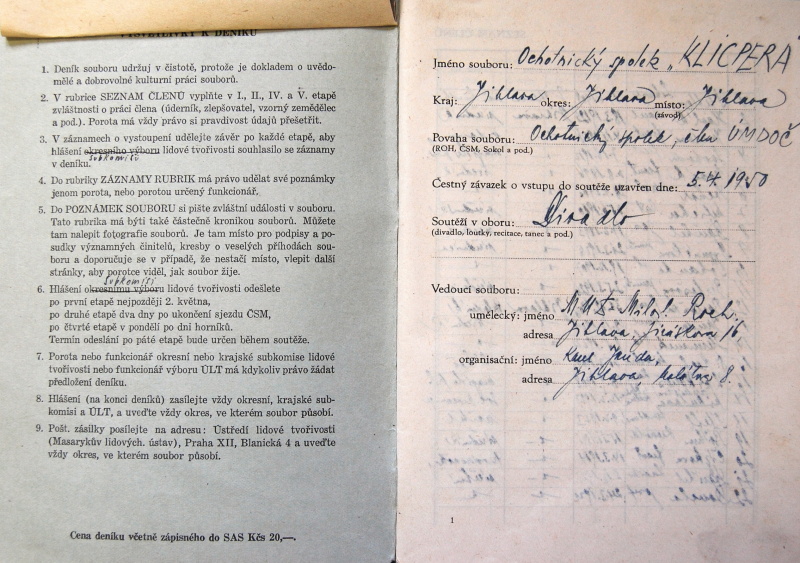 VYSVĚTLIVKY K DENÍKU
1. Deník souboru udržuj v čistotě, protože je dokladem o uvědo-
mělé a dobrovolné kulturní práci souborů.
2. V rubrice SEZNAM ČLENŮ vyplňte v I., II., IV. a V. etapě
zvláštnosti o práci člena (úderník, zlepšovatel, vzorný zemědělec
a pod.). Porota má vždy právo si pravdivost údajů přešetřit.
3. V záznamech o vystoupení udělejte závěr po každé etapě, aby
hlášení okresního výboru lidové tvořivosti souhlasilo se záznamy
v deníku. Subkomisi
4. Do rubriky ZÁZNAMY RUBRIK má právo udělat své poznámky
jenom porota, nebo porotou určený funkcionář.
5. Do POZNÁMEK SOUBORU si pište zvláštní události v souboru.
Tato rubrika má býti také částečně kronikou souborů. Můžete
tam nalepit fotografie souborů. Je tam místo pro podpisy a po-
sudky význačných činitelů, kresby o veselých příhodách sou-
boru a doporučuje se v případě, že nestačí místo, vlepit další
stránky, aby porotce viděl, jak soubor žije.
Subkomisi
6. Hlášení okresnímu výboru lidové tvořivosti odešlete
po první etapě nejpozději 2. května,
po druhé etapě dva dny po ukončení sjezdu ČSM,
po čtvrté etapě v pondělí po dni horníků.
Termín odeslání po páté etapě bude určen během soutěže.
7. Porota nebo funkcionář okresní nebo krajské subkomise lidové
tvořivosti nebo funkcionář výboru ÚLT má kdykoliv právo žádat
předložení deníku.
8. Hlášení (na konci deníků) zasílejte vždy okresní, krajské sub-
komisi a ÚLT, a uveďte vždy okres, ve kterém soubor působí.
9. Pošt. zásilky posílejte na adresu: Ústředí lidové tvořivosti
(Masarykův lidových. ústav), Praha XII, Blanická 4 a uveďte
vždy okres, ve kterém soubor působí.
Cena deníku včetně zápisného do SAS Kčs 20,—.
Jméno souboru: Ochotnický spolek „KLICPERA"
Kraj: Jihlava okres: Jihlava místo: Jihlava
(závod)
Povaha souboru: Ochotnický spolek, člen ÚMDOČ
(ROH, ČSM, Sokol a pod.)
Čestný závazek o vstupu do soutěže uzavřen dne: 5.4.1950
Soutěží v oboru: Divadlo
(divadlo, loutky, recitace, tanec a pod.)
Vedoucí souboru:
umělecký: jméno Milosl. Roch.
adresa Jihlava, Jiráskova 16
organisační: jméno Karel Janda,
adresa Jihlava, 8.
1